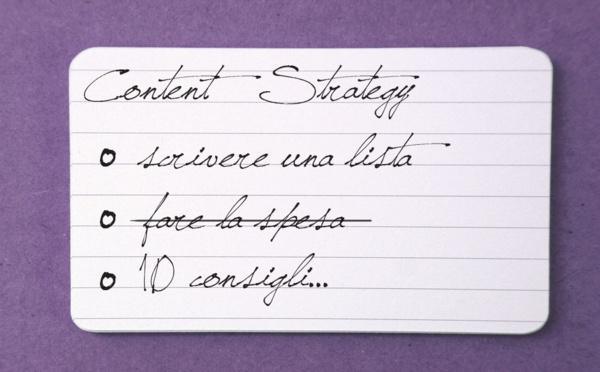 Content Strategy
scrivere una lista
fare la spesa
10 consigli...